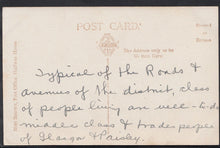 POST CARD.
The Address only to be
Typical of the Roads &
avenues of the district, class
of people living are well-to-do
middle class & trades people
of Glasgow & Paisley.